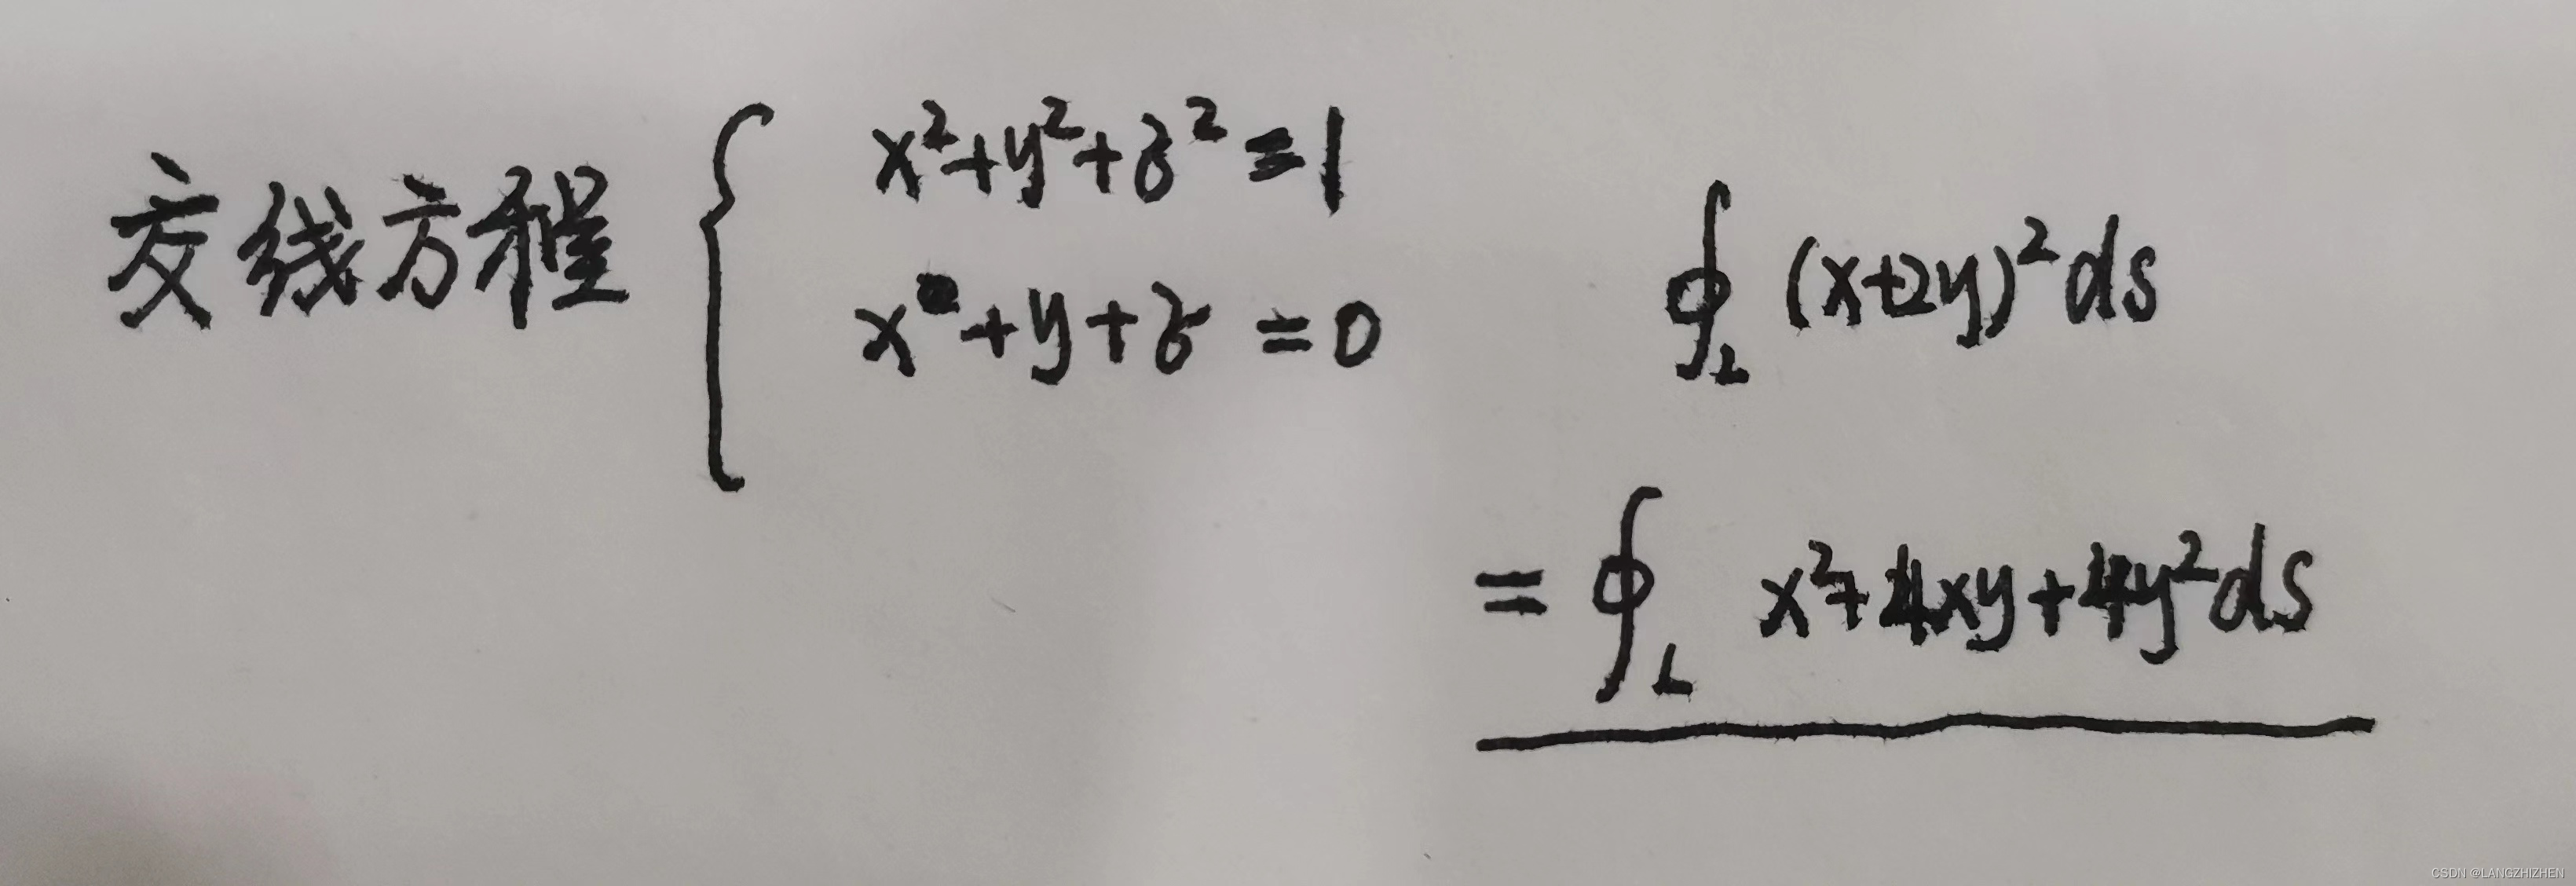 交线方程 { x²+y²+z²=1
x+y+z=0
∮_L (x+2y)² ds
= ∮_L x²+4xy+4y² ds
CSDN @LANGZHIZHEN